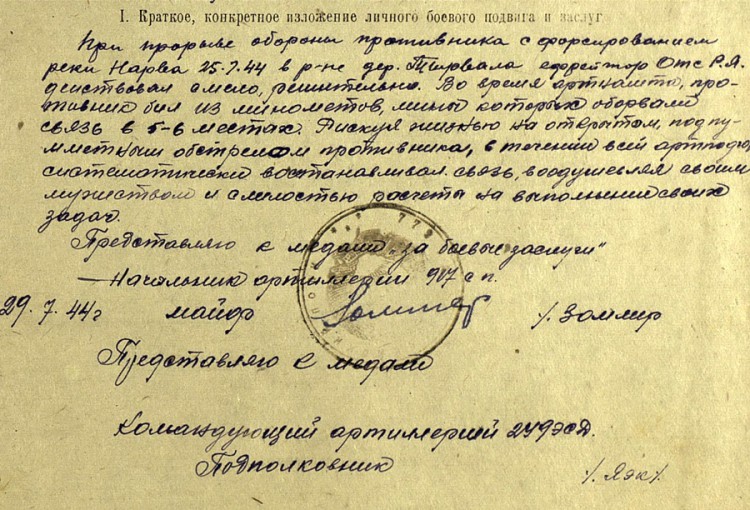 I. Краткое, конкретное изложение личного боевого подвига и заслуг
При прорыве обороны противника с форсированием
реки Нарва 25.7.44 в р-не дер. Тирвала ефрейтор Отс Р.Я.
действовал смело, решительно. Во время артналёта, про-
тивник бил из минометов, мины которых оборвали
связь в 5-6 местах. Рискуя жизнью на открытом, под пу-
леметным обстрелом противника, в течении всей артподго
систематически востанавливал связь, воодушевляя своим
мужеством и смелостью расчеты на выполнении своих
задач.
Представляю к медали „за боевые заслуги"
— Начальник артиллерии 917 с п.
29. 7. 44г майор /. Зоммер
Представляю к медали
Командующий артиллерий 249эсд.
Подполковник /. Яэк /.